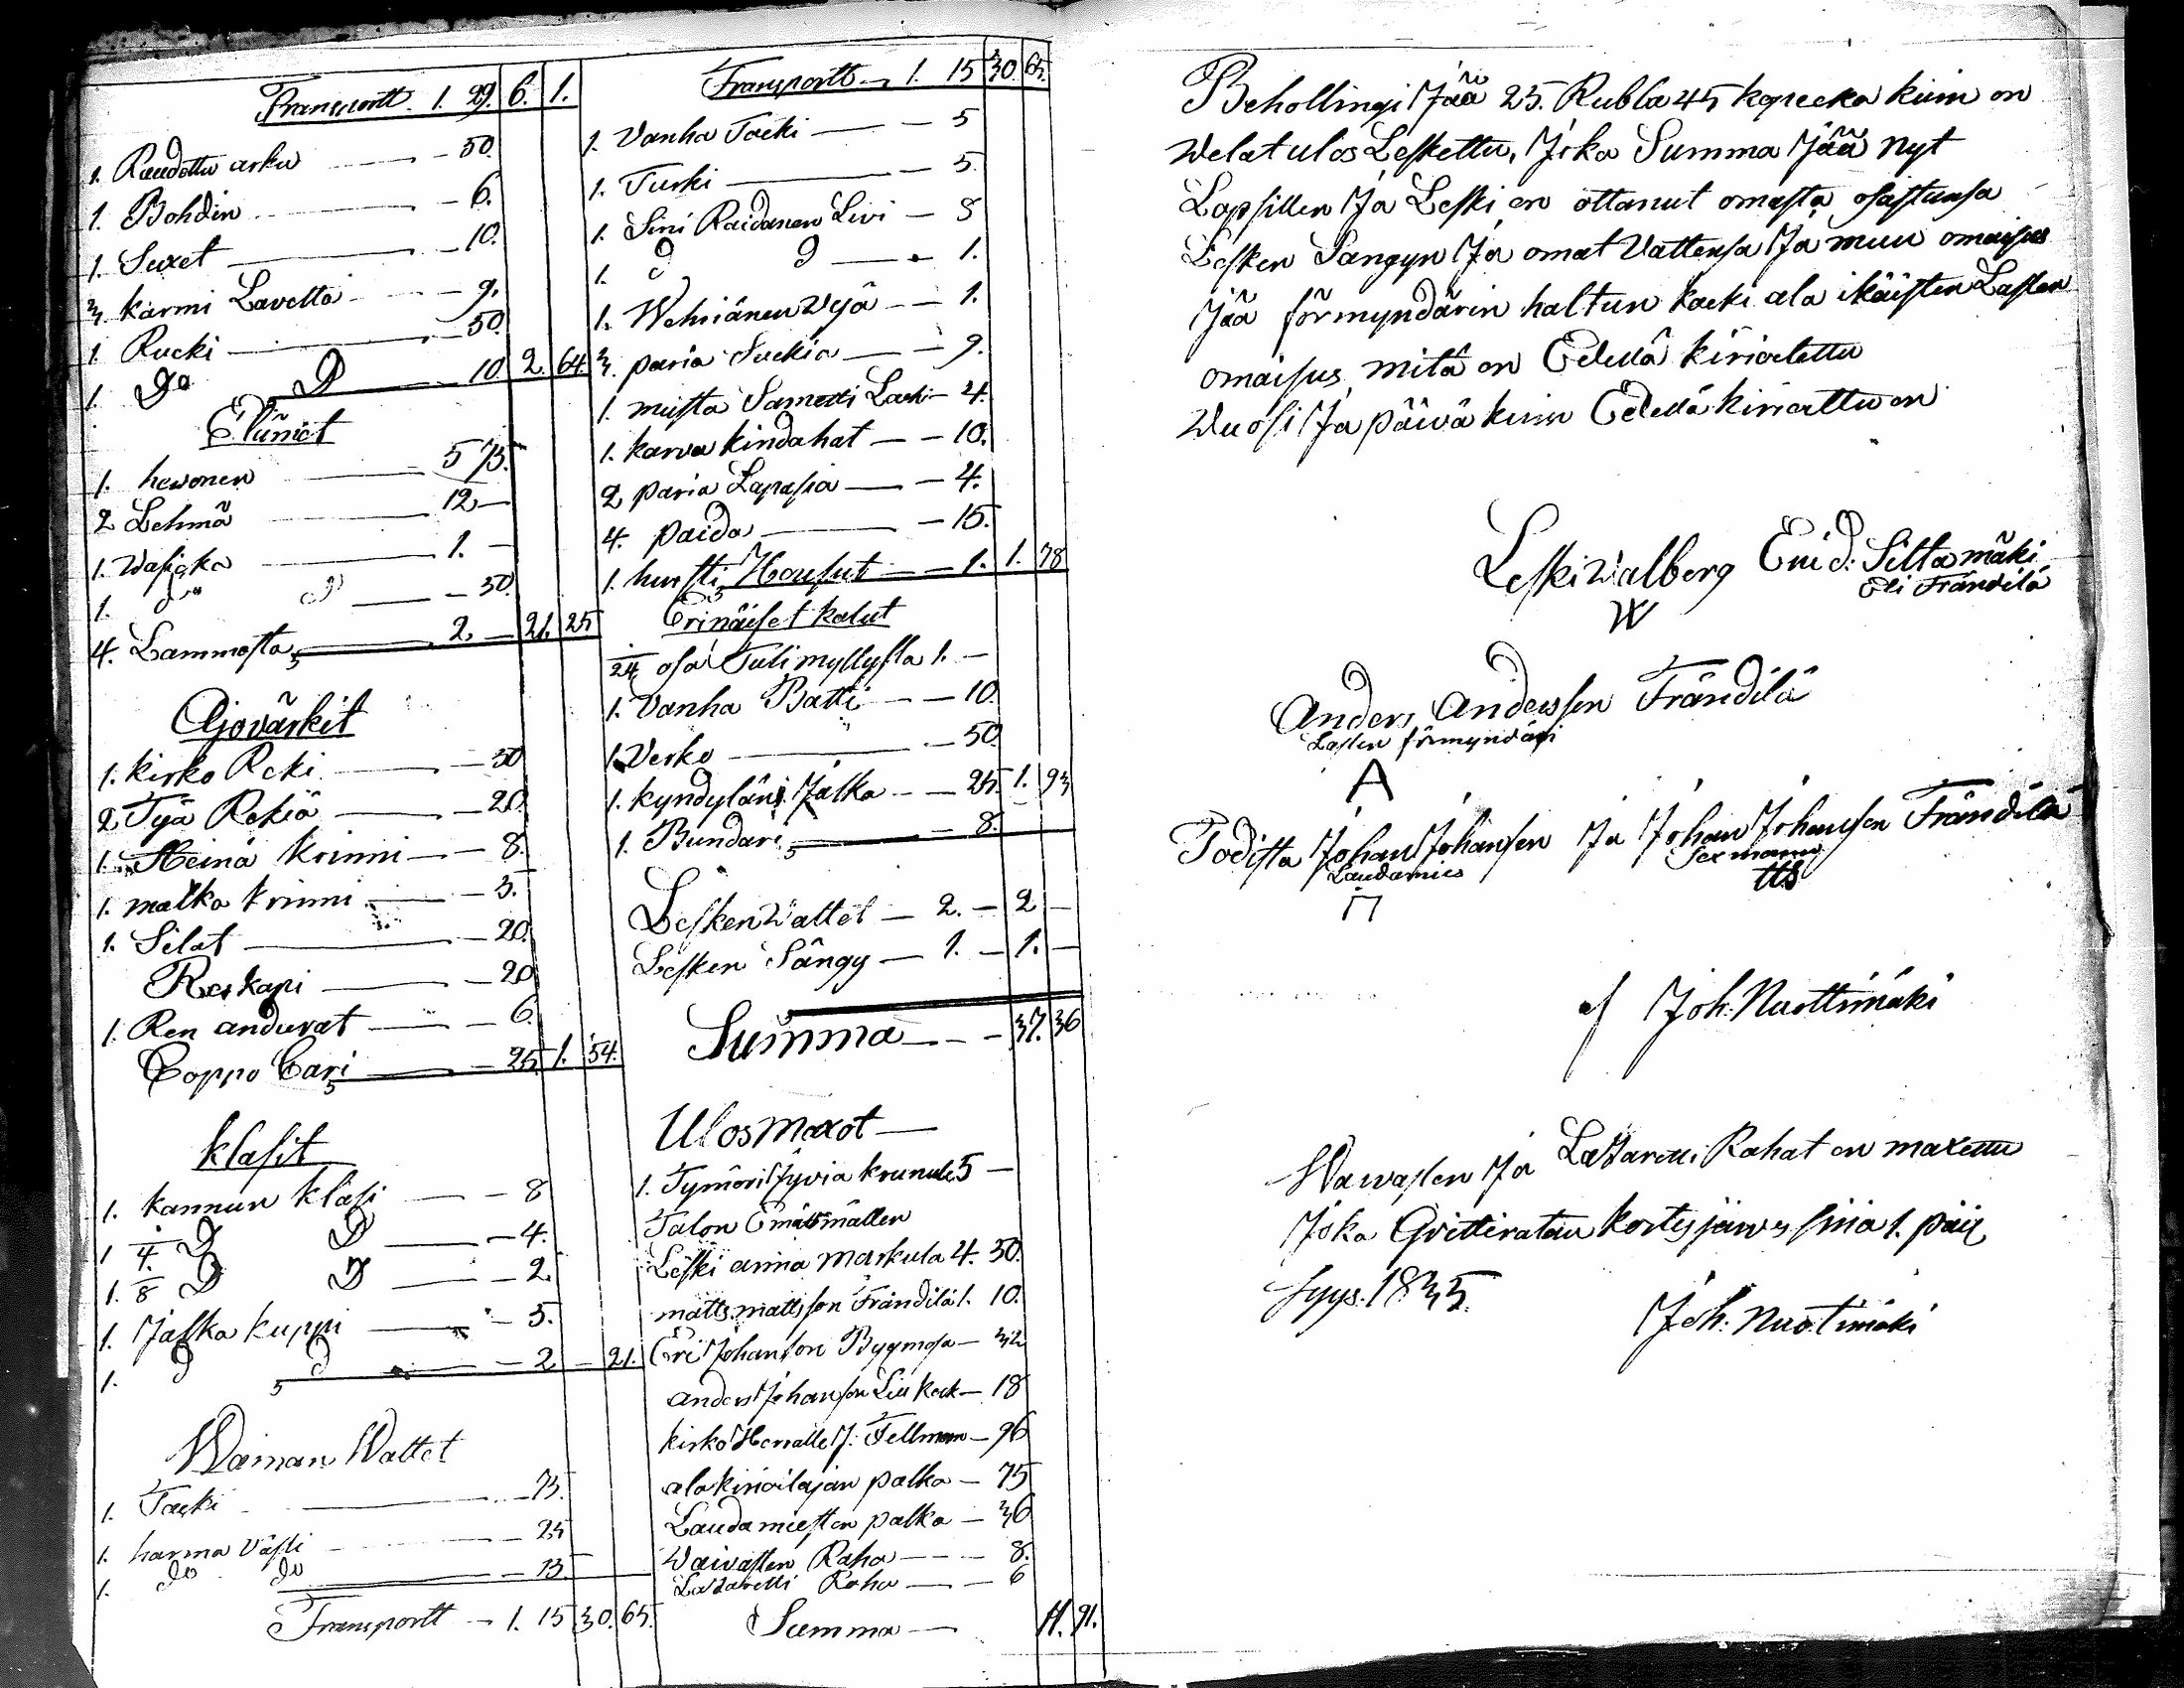 Transportt. 1. 29. 6. 1.
1. Raudottu arku — 50.
1. Bohdin — 6.
1. Suxet — 10.
3 karmi Lavetta — 9.
1. Rucki — 50.
1. Do D — 10 2. 64.
Elűmet
1. hewonen — 5 75.
2 Lehmä — 12 —
1. Wasicka — 1. —
1. d° d° — 50.
4. Lammasta — 2. — 21. 25
Ajovärkit
1. kirko Reki — 50
2 Tyä Rekiä — 20.
1. Heinä krinni — 8.
1. matka krinni — 5.
1. Silat — 20.
Reskapi — 20
1. Ren anduvat — 6.
Coppo Cari — 25. 1. 54.
klasit
1. kannun klasi — 8
1 1/4. D D — 4.
1. 1/8 D D — 2.
1. Jalka kuppi — 5.
1. d d — 2 — 21.
Waiman Wattet
1. Tacki — 75.
1. harma Västi — 25
1. do do — 15.
Transportt — 1. 15 30. 65.
Transportt — 1. 15 30. 65.
1. Vanha Tacki — 5
1. Turki — 5.
1. Sini Raidanen Livi — 8
1. d d — 1.
1. Wehriänen Wyä — 1.
3. paria Suckia — 9.
1. musta Sametti Lacki — 4.
1. karva kindahat — 10.
2 paria Lapasia — 4.
4. paida — 15.
1. hursti Housut — 1. 1. 78
Erinäiset kalut
1/24 osa Tulimyllysta 1. —
1. Vanha Batti — 10.
1. Verko — 50.
1. kyndyläni Jalka — 25. 1. 93
1. Bundari — 8.
Lesken Wattet — 2. — 2 —
Lesken Sängy — 1. — 1. —
Summa — 37. 36
Ulosmaxot —
1. Tymöri Jyviä krunule 5 —
Talon Emättmällen
Leski anna Markula 4. 50.
matts mattsson Frändilä 1. 10.
Eric Johanson Bygmosa — 32
anders Johanson Liukock — 18
kirko Herralle J: Fellman — 96
alakirioitajan palka — 75
Laudamiesten palka — 36
Waivasten Raha — 8.
Latzaretti Raha — 6
Summa — 11. 91.
Behollingi Jää 25. Rubla 45 kopecka kuin on
Welat ulos Leskettu, Joka Summa Jää nyt
Lapsillen Ja Leski on ottanut omasta osastansa
Lesken Sangyn Ja omat Vattensa Ja muu omaisus
Jää förmyndärin haltun kacki ala ikäisten Lasten
omaisus mitä on Edellä kirioitettu
Wuosi Ja päivä kuin Edellä kirioittu on
Leski Walborg Erici D: Siltamäki
Eli Frändilä
W
Anders Andersson Frändilä
Lasten förmyndäri
A
Todista Johan Johansson Ja Johan Johansson Frändilä
Laudamies Sexmanni
af Joh. Nuottimäki
Waivasten Ja Latzaretti Rahat on maxettu
Joka Qvitteratan kortesjärves siiä 1. päi
syys. 1835.
Joh: Nuotimäki